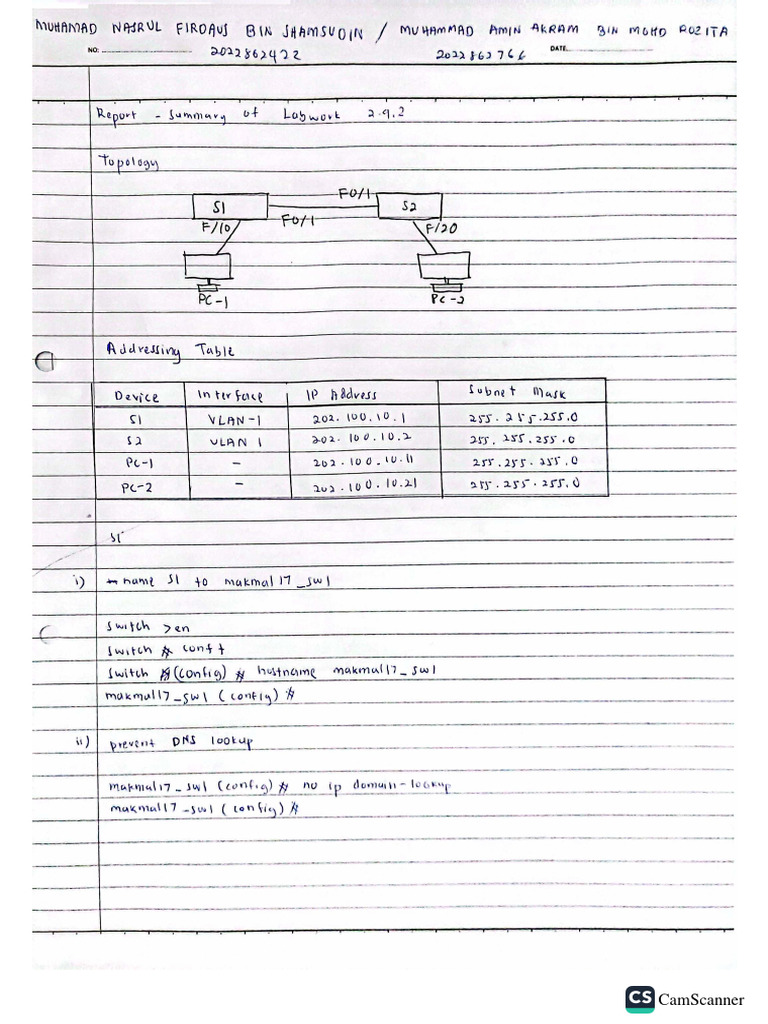 MUHAMAD NASRUL FIRDAUS BIN SHAMSUDIN / MUHAMMAD AMIN AKRAM BIN MOHD ROZITA
NO: 2022862422 2022862766 DATE
Report - summary of Labwork 2.9.2
Topology
S1 F0/1 S2
F/10 F0/1 F/20
PC-1 PC-2
Addressing Table
Device Interface IP Address Subnet Mask
S1 VLAN-1 202.100.10.1 255.255.255.0
S2 VLAN 1 202.100.10.2 255.255.255.0
PC-1 - 202.100.10.11 255.255.255.0
PC-2 - 202.100.10.21 255.255.255.0
S1
i) name S1 to makmal17_sw1
switch >en
switch # conf t
switch #(config) # hostname makmal17_sw1
makmal17_sw1 (config) #
ii) prevent DNS lookup
makmal17_sw1 (config) # no ip domain-lookup
makmal17_sw1 (config) #
CS CamScanner